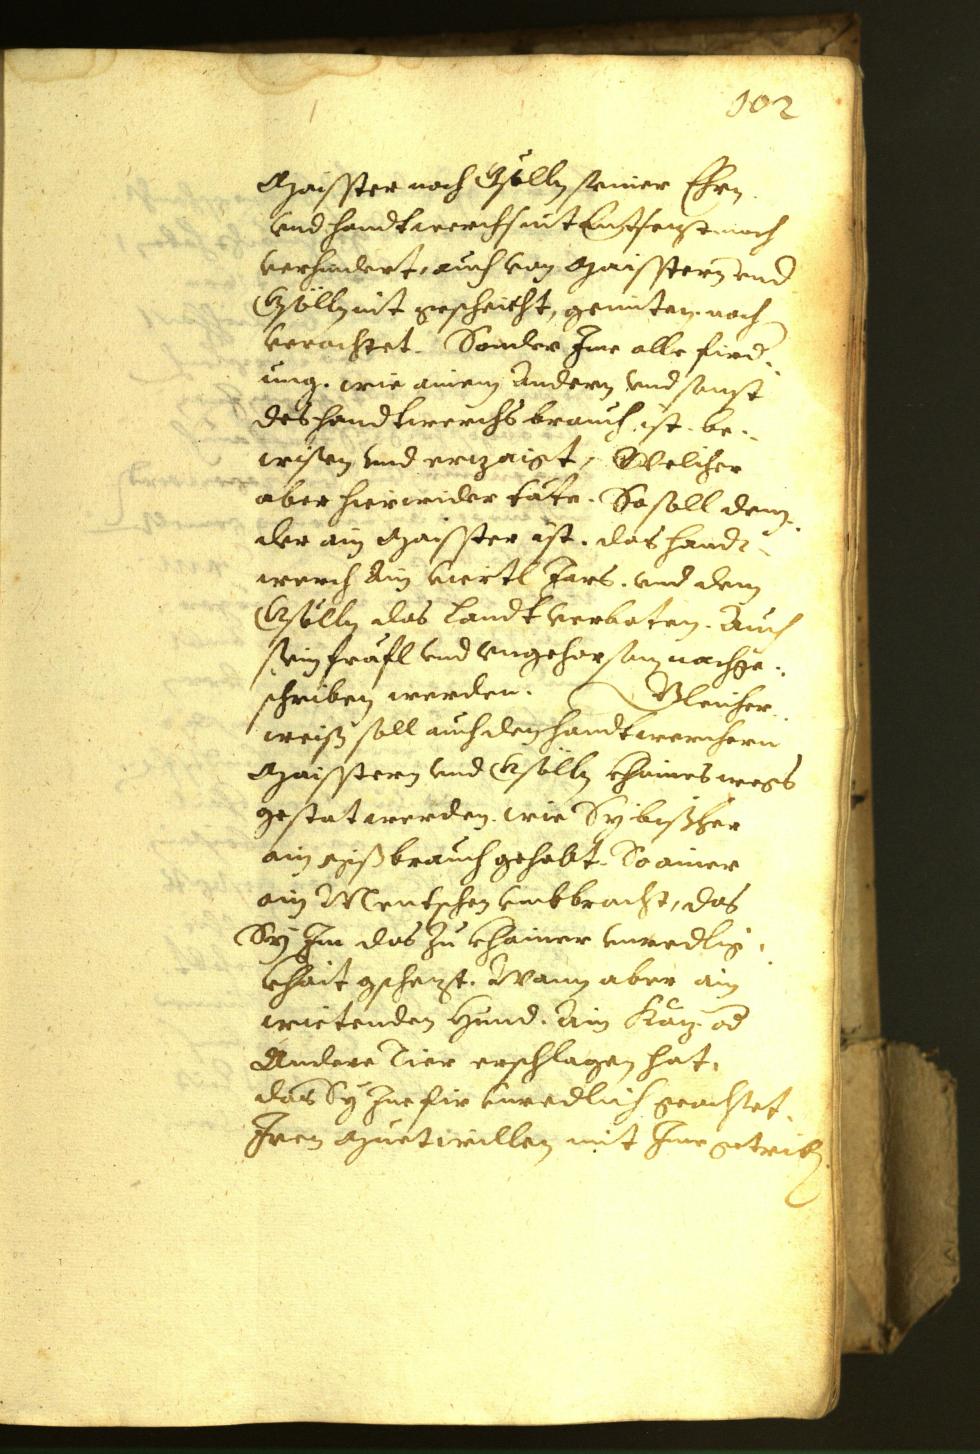 102
Maisster noch Gsölln seiner Ehrn
vnd handtwerchs nit Entsetzt noch
verhindert, auch von Maisstern vnd
Gsölln nit gescheicht, gemiten noch
verachtet. Sonder Ime alle fird-
ung. wie ainem Andern vnd sonst
des handtwerchs brauch ist. be-
wisen vnd erzaigt, Welicher
aber hierwider täte. So soll dem
der ain Maisster ist. das handt-
werch Ain viertl Jars. vnd dem
Gsölln das Landt verboten. Auch
sein fräfl vnd vngehorsam nachge-
schriben werden. Gleicher
weiß soll auch den handtwerchern
Maisstern vnd Gsölln khaines wegs
gestat werden. wie Sy bißher
ain Mißbrauch gehabt. So ainer
ain Mentschen vmbbracht, das
Sy Im das zu khainer vnredlig-
khait geschezt. Wann aber ain
wietenden Hund. Ain Kaz. od
Andere Tier erschlagen hat,
das Sy Ine fir vnredlich geachtet.
Iren Muetwillen mit Ime getribn